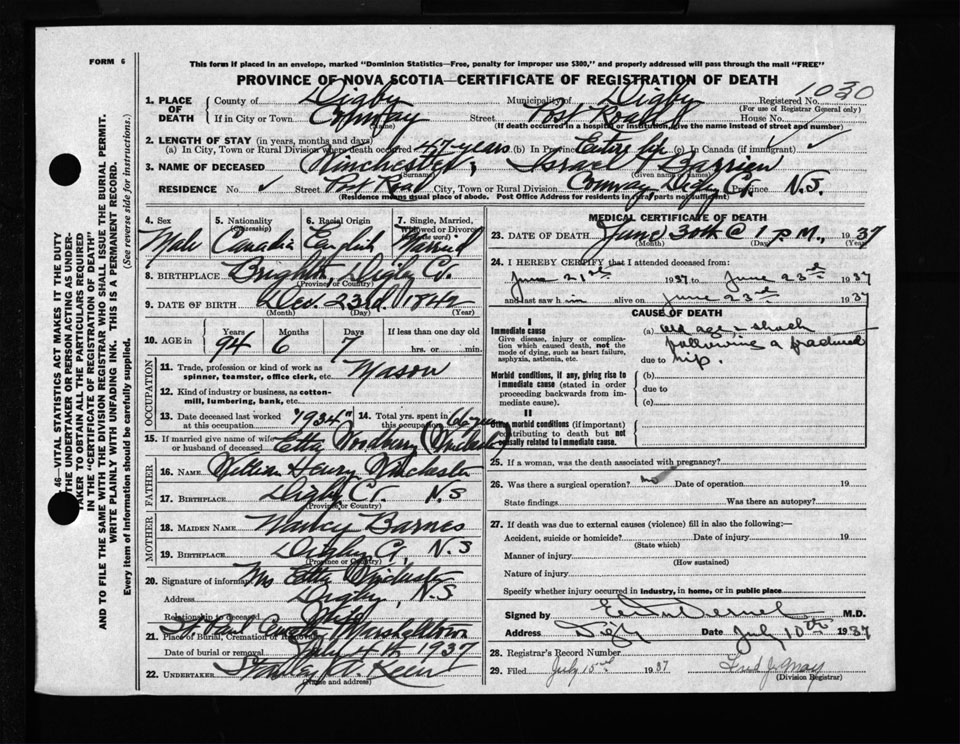 FORM 6
This form if placed in an envelope, marked "Dominion Statistics—Free, penalty for improper use $300," and properly addressed will pass through the mail "FREE"
PROVINCE OF NOVA SCOTIA—CERTIFICATE OF REGISTRATION OF DEATH
1030
1. PLACE OF DEATH
County of Digby Municipality of Digby Registered No.
(For use of Registrar General only)
If in City or Town Conway Street Post Road House No.
(Name)
(If death occurred in a hospital or institution, give the name instead of street and number)
2. LENGTH OF STAY (in years, months and days)
(a) In City, Town or Rural Division where death occurred 47 years (b) In Province Entire life (c) In Canada (if immigrant) ✓
3. NAME OF DECEASED Winchester, Israel
(Surname) (Given name or names)
RESIDENCE No. ✓ Street Post Road City, Town or Rural Division Conway Digby Co. Province N.S.
(Residence means usual place of abode. Post Office Address for residents in rural parts not sufficient)
4. Sex Male
5. Nationality (Citizenship) Canadia
6. Racial Origin English
7. Single, Married, Widowed or Divorced (write word) Married
8. BIRTHPLACE Brighton, Digby Co.
(Province or Country)
9. DATE OF BIRTH Dec. 23rd 1842
(Month) (Day) (Year)
10. AGE in Years 94 Months 6 Days 7 If less than one day old
hrs. or min.
OCCUPATION
11. Trade, profession or kind of work as spinner, teamster, office clerk, etc. Mason
12. Kind of industry or business, as cotton-mill, lumbering, bank, etc.
13. Date deceased last worked at this occupation "1934"
14. Total yrs. spent in this occupation
15. If married give name of wife or husband of deceased Etta (Winchester)
FATHER
16. NAME William Henry Winchester
17. BIRTHPLACE Digby Co. N.S
(Province or Country)
MOTHER
18. MAIDEN NAME Nancy Barnes
19. BIRTHPLACE Digby Co, N.S
(Province or Country)
20. Signature of informant Mrs Etta Winchester
Address Digby, N.S
Relationship to deceased Wife
21. Place of Burial, Cremation or Removal Marshalltown
Date of burial or removal July 4th 1937
22. UNDERTAKER
(Name and address)
MEDICAL CERTIFICATE OF DEATH
23. DATE OF DEATH June 30th @ 1 P.M., 1937
(Month) (Day) (Year)
24. I HEREBY CERTIFY that I attended deceased from:
June 21st 1937 to June 23rd 1937
and last saw him alive on June 23rd 1937
CAUSE OF DEATH
I
Immediate cause
Give disease, injury or complication which caused death, not the mode of dying, such as heart failure, asphyxia, asthenia, etc.
(a) old age & shock
following a fractured
due to hip.
Morbid conditions, if any, giving rise to immediate cause (stated in order proceeding backwards from immediate cause).
(b)
due to
(c)
II
Other morbid conditions (if important) contributing to death but not causally related to immediate cause.
25. If a woman, was the death associated with pregnancy?
26. Was there a surgical operation? no Date of operation 19
State findings Was there an autopsy?
27. If death was due to external causes (violence) fill in also the following:—
Accident, suicide or homicide? Date of injury 19
(State which)
Manner of injury
(How sustained)
Nature of injury
Specify whether injury occurred in industry, in home, or in public place
Signed by M.D.
Address Digby Date July 10th 1937
28. Registrar's Record Number
29. Filed July 15th 1937
(Division Registrar)
46—VITAL STATISTICS ACT MAKES IT THE DUTY
OF THE UNDERTAKER OR PERSON ACTING AS UNDERTAKER TO OBTAIN ALL THE PARTICULARS REQUIRED
IN THE "CERTIFICATE OF REGISTRATION OF DEATH"
AND TO FILE THE SAME WITH THE DIVISION REGISTRAR WHO SHALL ISSUE THE BURIAL PERMIT.
WRITE PLAINLY WITH UNFADING INK. THIS IS A PERMANENT RECORD.
Every item of Information should be carefully supplied. (See reverse side for instructions.)